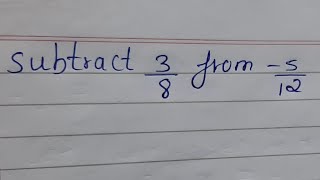 subtract 3/8 from -5/12